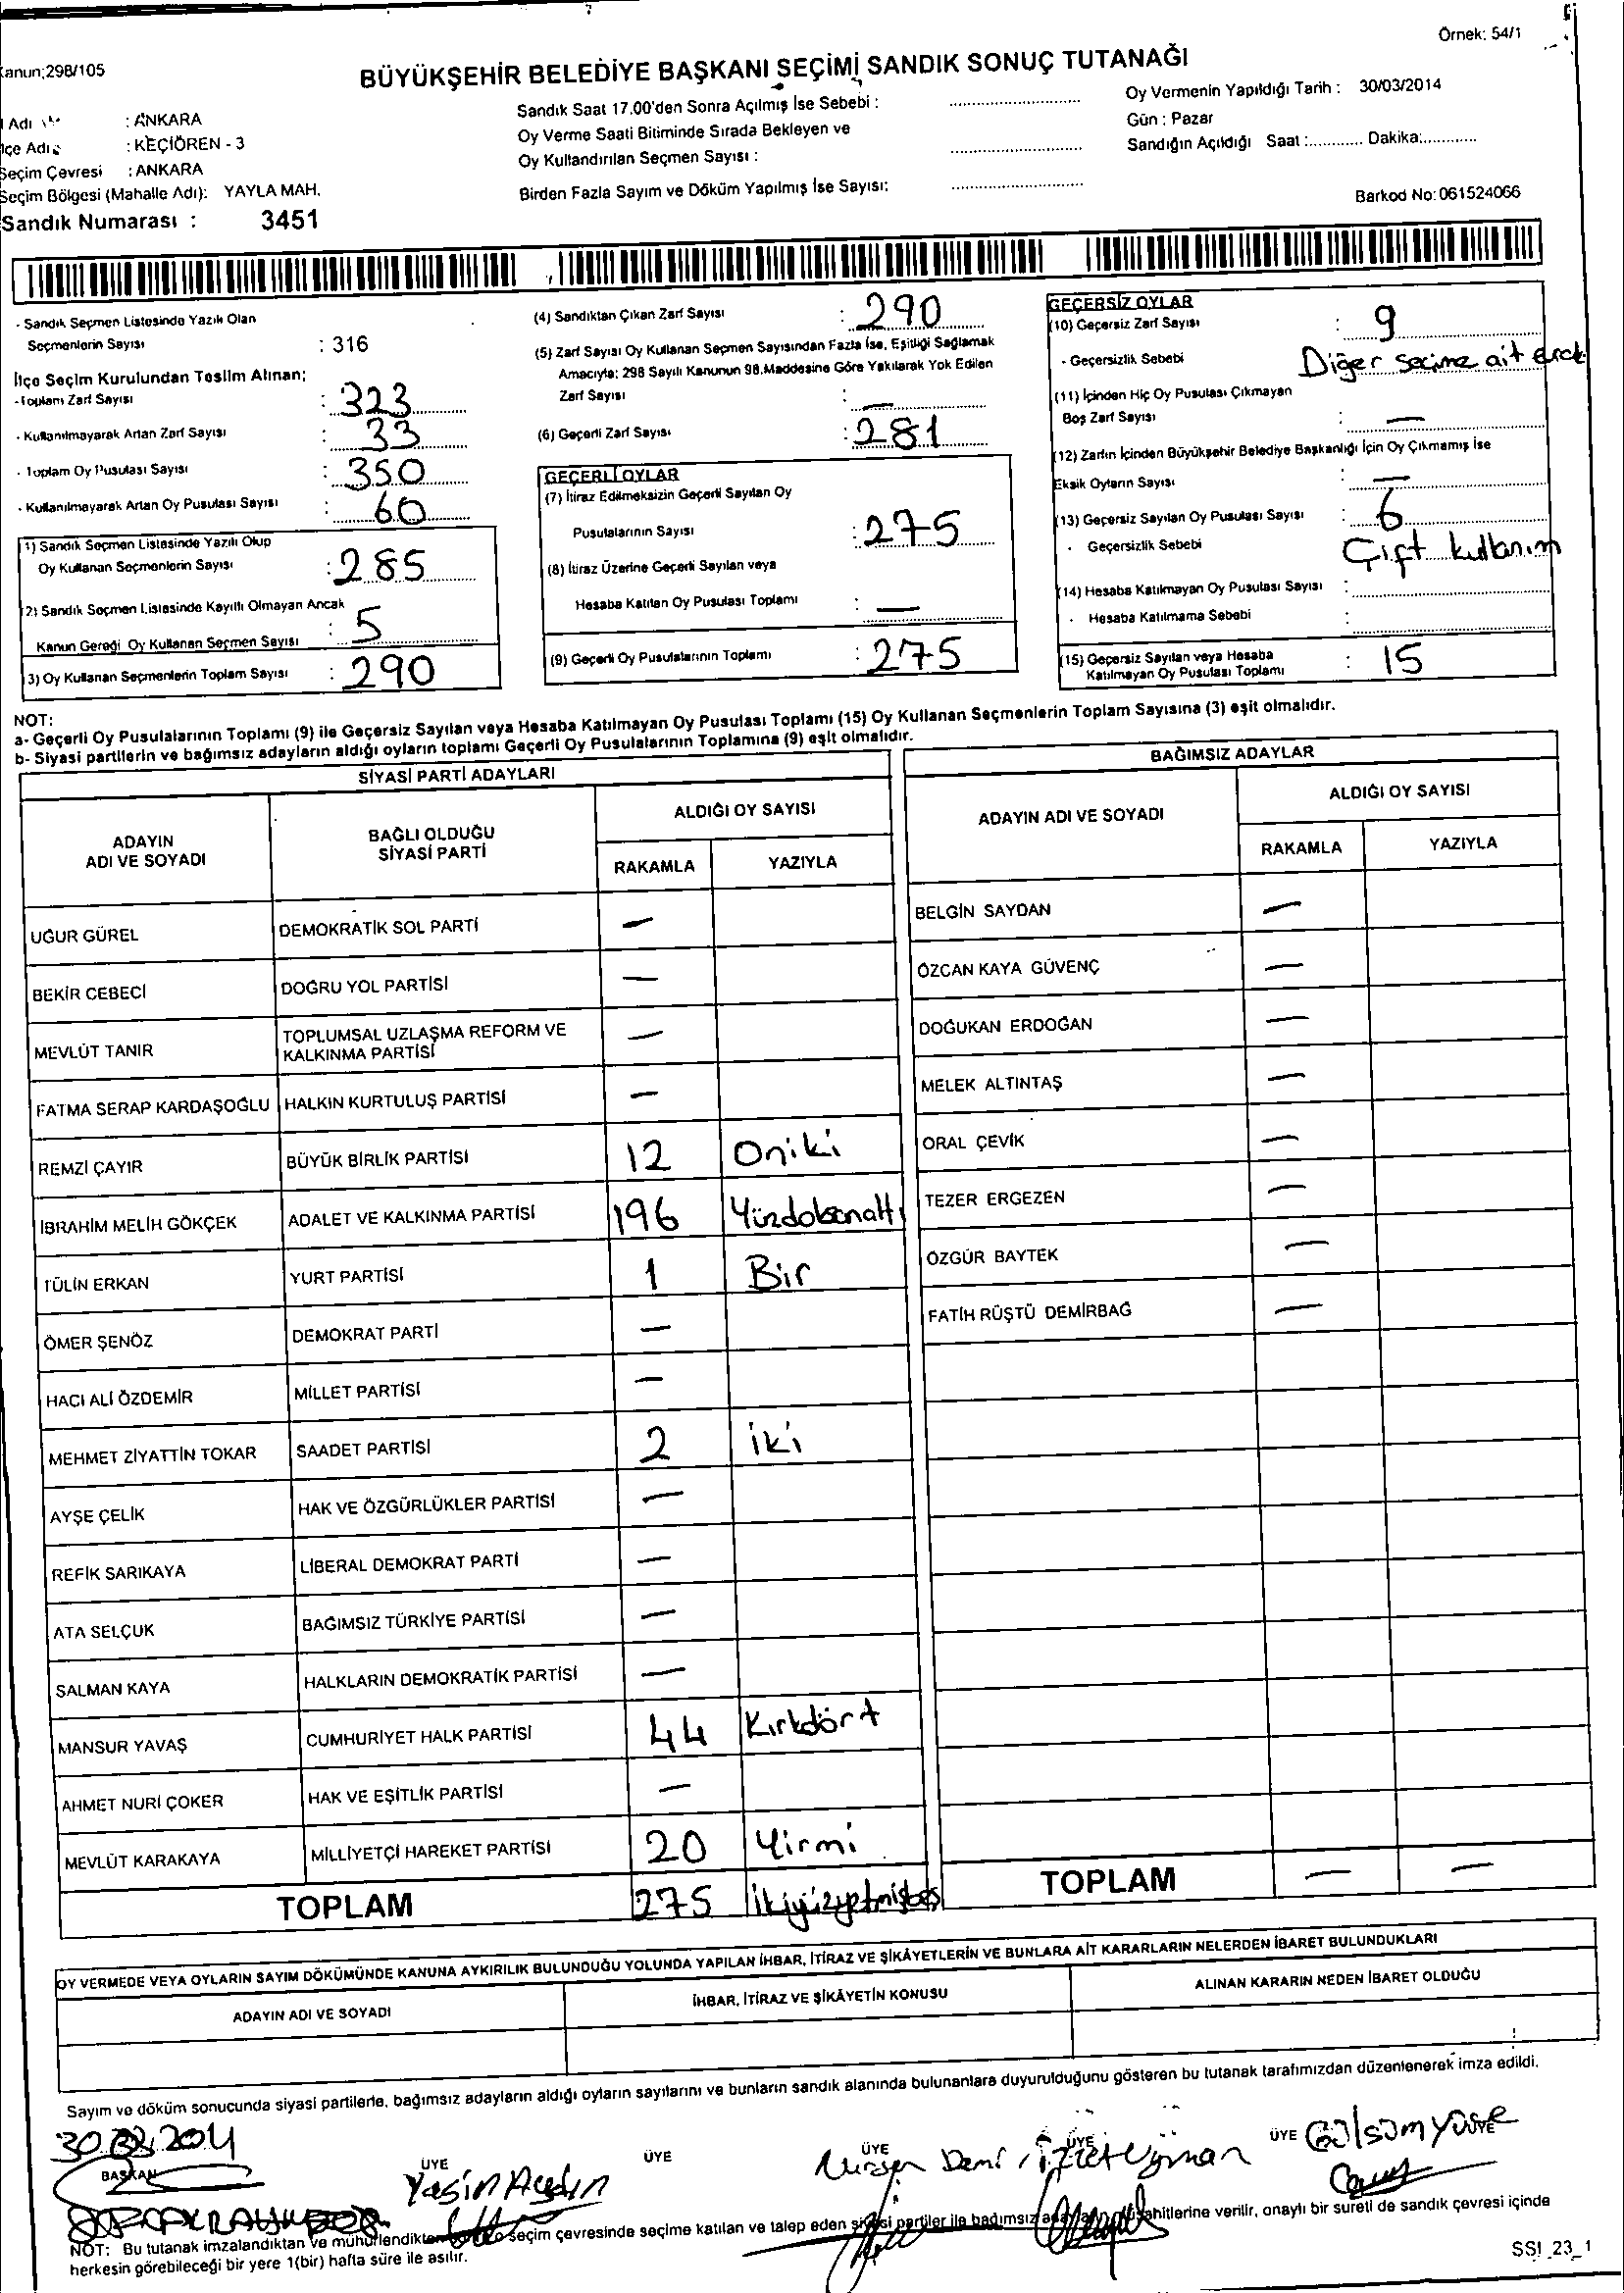 Örnek: 54/1
Kanun;298/105
BÜYÜKŞEHİR BELEDİYE BAŞKANI SEÇİMİ SANDIK SONUÇ TUTANAĞI
Adı : ANKARA
İlçe Adı : KEÇİÖREN - 3
Seçim Çevresi : ANKARA
Seçim Bölgesi (Mahalle Adı): YAYLA MAH.
Sandık Numarası : 3451
Sandık Saat 17.00'den Sonra Açılmış İse Sebebi :
Oy Verme Saati Bitiminde Sırada Bekleyen ve
Oy Kullandırılan Seçmen Sayısı :
Birden Fazla Sayım ve Döküm Yapılmış İse Sayısı:
Oy Vermenin Yapıldığı Tarih : 30/03/2014
Gün : Pazar
Sandığın Açıldığı Saat :............ Dakika:............
Barkod No: 061524066
- Sandık Seçmen Listesinde Yazılı Olan
Seçmenlerin Sayısı : 316
İlçe Seçim Kurulundan Teslim Alınan;
-Toplam Zarf Sayısı : 323
- Kullanılmayarak Artan Zarf Sayısı : 33
- Toplam Oy Pusulası Sayısı : 350
- Kullanılmayarak Artan Oy Pusulası Sayısı : 60
1) Sandık Seçmen Listesinde Yazılı Olup
Oy Kullanan Seçmenlerin Sayısı : 285
2) Sandık Seçmen Listesinde Kayıtlı Olmayan Ancak
Kanun Gereği Oy Kullanan Seçmen Sayısı : 5
3) Oy Kullanan Seçmenlerin Toplam Sayısı : 290
(4) Sandıktan Çıkan Zarf Sayısı : 290
(5) Zarf Sayısı Oy Kullanan Seçmen Sayısından Fazla İse, Eşitliği Sağlamak
Amacıyla; 298 Sayılı Kanunun 98.Maddesine Göre Yakılarak Yok Edilen
Zarf Sayısı : —
(6) Geçerli Zarf Sayısı : 281
GEÇERLİ OYLAR
(7) İtiraz Edilmeksizin Geçerli Sayılan Oy
Pusulalarının Sayısı : 275
(8) İtiraz Üzerine Geçerli Sayılan veya
Hesaba Katılan Oy Pusulası Toplamı : —
(9) Geçerli Oy Pusulalarının Toplamı : 275
GEÇERSİZ OYLAR
(10) Geçersiz Zarf Sayısı : 9
- Geçersizlik Sebebi Diğer seçime ait evrak
(11) İçinden Hiç Oy Pusulası Çıkmayan
Boş Zarf Sayısı : —
(12) Zarfın İçinden Büyükşehir Belediye Başkanlığı İçin Oy Çıkmamış İse
Eksik Oyların Sayısı : —
(13) Geçersiz Sayılan Oy Pusulası Sayısı : 6
- Geçersizlik Sebebi Çift kullanım
(14) Hesaba Katılmayan Oy Pusulası Sayısı :
- Hesaba Katılmama Sebebi :
(15) Geçersiz Sayılan veya Hesaba
Katılmayan Oy Pusulası Toplamı : 15
NOT:
a- Geçerli Oy Pusulalarının Toplamı (9) ile Geçersiz Sayılan veya Hesaba Katılmayan Oy Pusulası Toplamı (15) Oy Kullanan Seçmenlerin Toplam Sayısına (3) eşit olmalıdır.
b- Siyasi partilerin ve bağımsız adayların aldığı oyların toplamı Geçerli Oy Pusulalarının Toplamına (9) eşit olmalıdır.
SİYASİ PARTİ ADAYLARI
ADAYIN ADI VE SOYADI
BAĞLI OLDUĞU SİYASİ PARTİ
ALDIĞI OY SAYISI
RAKAMLA YAZIYLA
UĞUR GÜREL DEMOKRATİK SOL PARTİ —
BEKİR CEBECİ DOĞRU YOL PARTİSİ —
MEVLÜT TANIR TOPLUMSAL UZLAŞMA REFORM VE KALKINMA PARTİSİ —
FATMA SERAP KARDAŞOĞLU HALKIN KURTULUŞ PARTİSİ —
REMZİ ÇAYIR BÜYÜK BİRLİK PARTİSİ 12 Oniki
İBRAHİM MELİH GÖKÇEK ADALET VE KALKINMA PARTİSİ 196 Yüzdoksanaltı
TÜLİN ERKAN YURT PARTİSİ 1 Bir
ÖMER ŞENÖZ DEMOKRAT PARTİ —
HACI ALİ ÖZDEMİR MİLLET PARTİSİ —
MEHMET ZİYATTİN TOKAR SAADET PARTİSİ 2 iki
AYŞE ÇELİK HAK VE ÖZGÜRLÜKLER PARTİSİ —
REFİK SARIKAYA LİBERAL DEMOKRAT PARTİ —
ATA SELÇUK BAĞIMSIZ TÜRKİYE PARTİSİ —
SALMAN KAYA HALKLARIN DEMOKRATİK PARTİSİ —
MANSUR YAVAŞ CUMHURİYET HALK PARTİSİ 44 Kırkdört
AHMET NURİ ÇOKER HAK VE EŞİTLİK PARTİSİ —
MEVLÜT KARAKAYA MİLLİYETÇİ HAREKET PARTİSİ 20 Yirmi
TOPLAM 275 ikiyüzyetmişbeş
BAĞIMSIZ ADAYLAR
ADAYIN ADI VE SOYADI
ALDIĞI OY SAYISI
RAKAMLA YAZIYLA
BELGİN SAYDAN —
ÖZCAN KAYA GÜVENÇ —
DOĞUKAN ERDOĞAN —
MELEK ALTINTAŞ —
ORAL ÇEVİK —
TEZER ERGEZEN —
ÖZGÜR BAYTEK —
FATİH RÜŞTÜ DEMİRBAĞ —
TOPLAM — —
OY VERMEDE VEYA OYLARIN SAYIM DÖKÜMÜNDE KANUNA AYKIRILIK BULUNDUĞU YOLUNDA YAPILAN İHBAR, İTİRAZ VE ŞİKÂYETLERİN VE BUNLARA AİT KARARLARIN NELERDEN İBARET BULUNDUKLARI
ADAYIN ADI VE SOYADI İHBAR, İTİRAZ VE ŞİKÂYETİN KONUSU ALINAN KARARIN NEDEN İBARET OLDUĞU
Sayım ve döküm sonucunda siyasi partilerle, bağımsız adayların aldığı oyların sayılarını ve bunların sandık alanında bulunanlara duyurulduğunu gösteren bu tutanak tarafımızdan düzenlenerek imza edildi.
BAŞKAN ÜYE ÜYE ÜYE ÜYE ÜYE
Yasin Aydın
Gülsüm
NOT: Bu tutanak imzalandıktan ve mühürlendikten seçim çevresinde seçime katılan ve talep eden siyasi partiler ile bağımsız müşahitlerine verilir, onaylı bir sureti de sandık çevresi içinde
herkesin görebileceği bir yere 1(bir) hafta süre ile asılır.
SSI_23_1